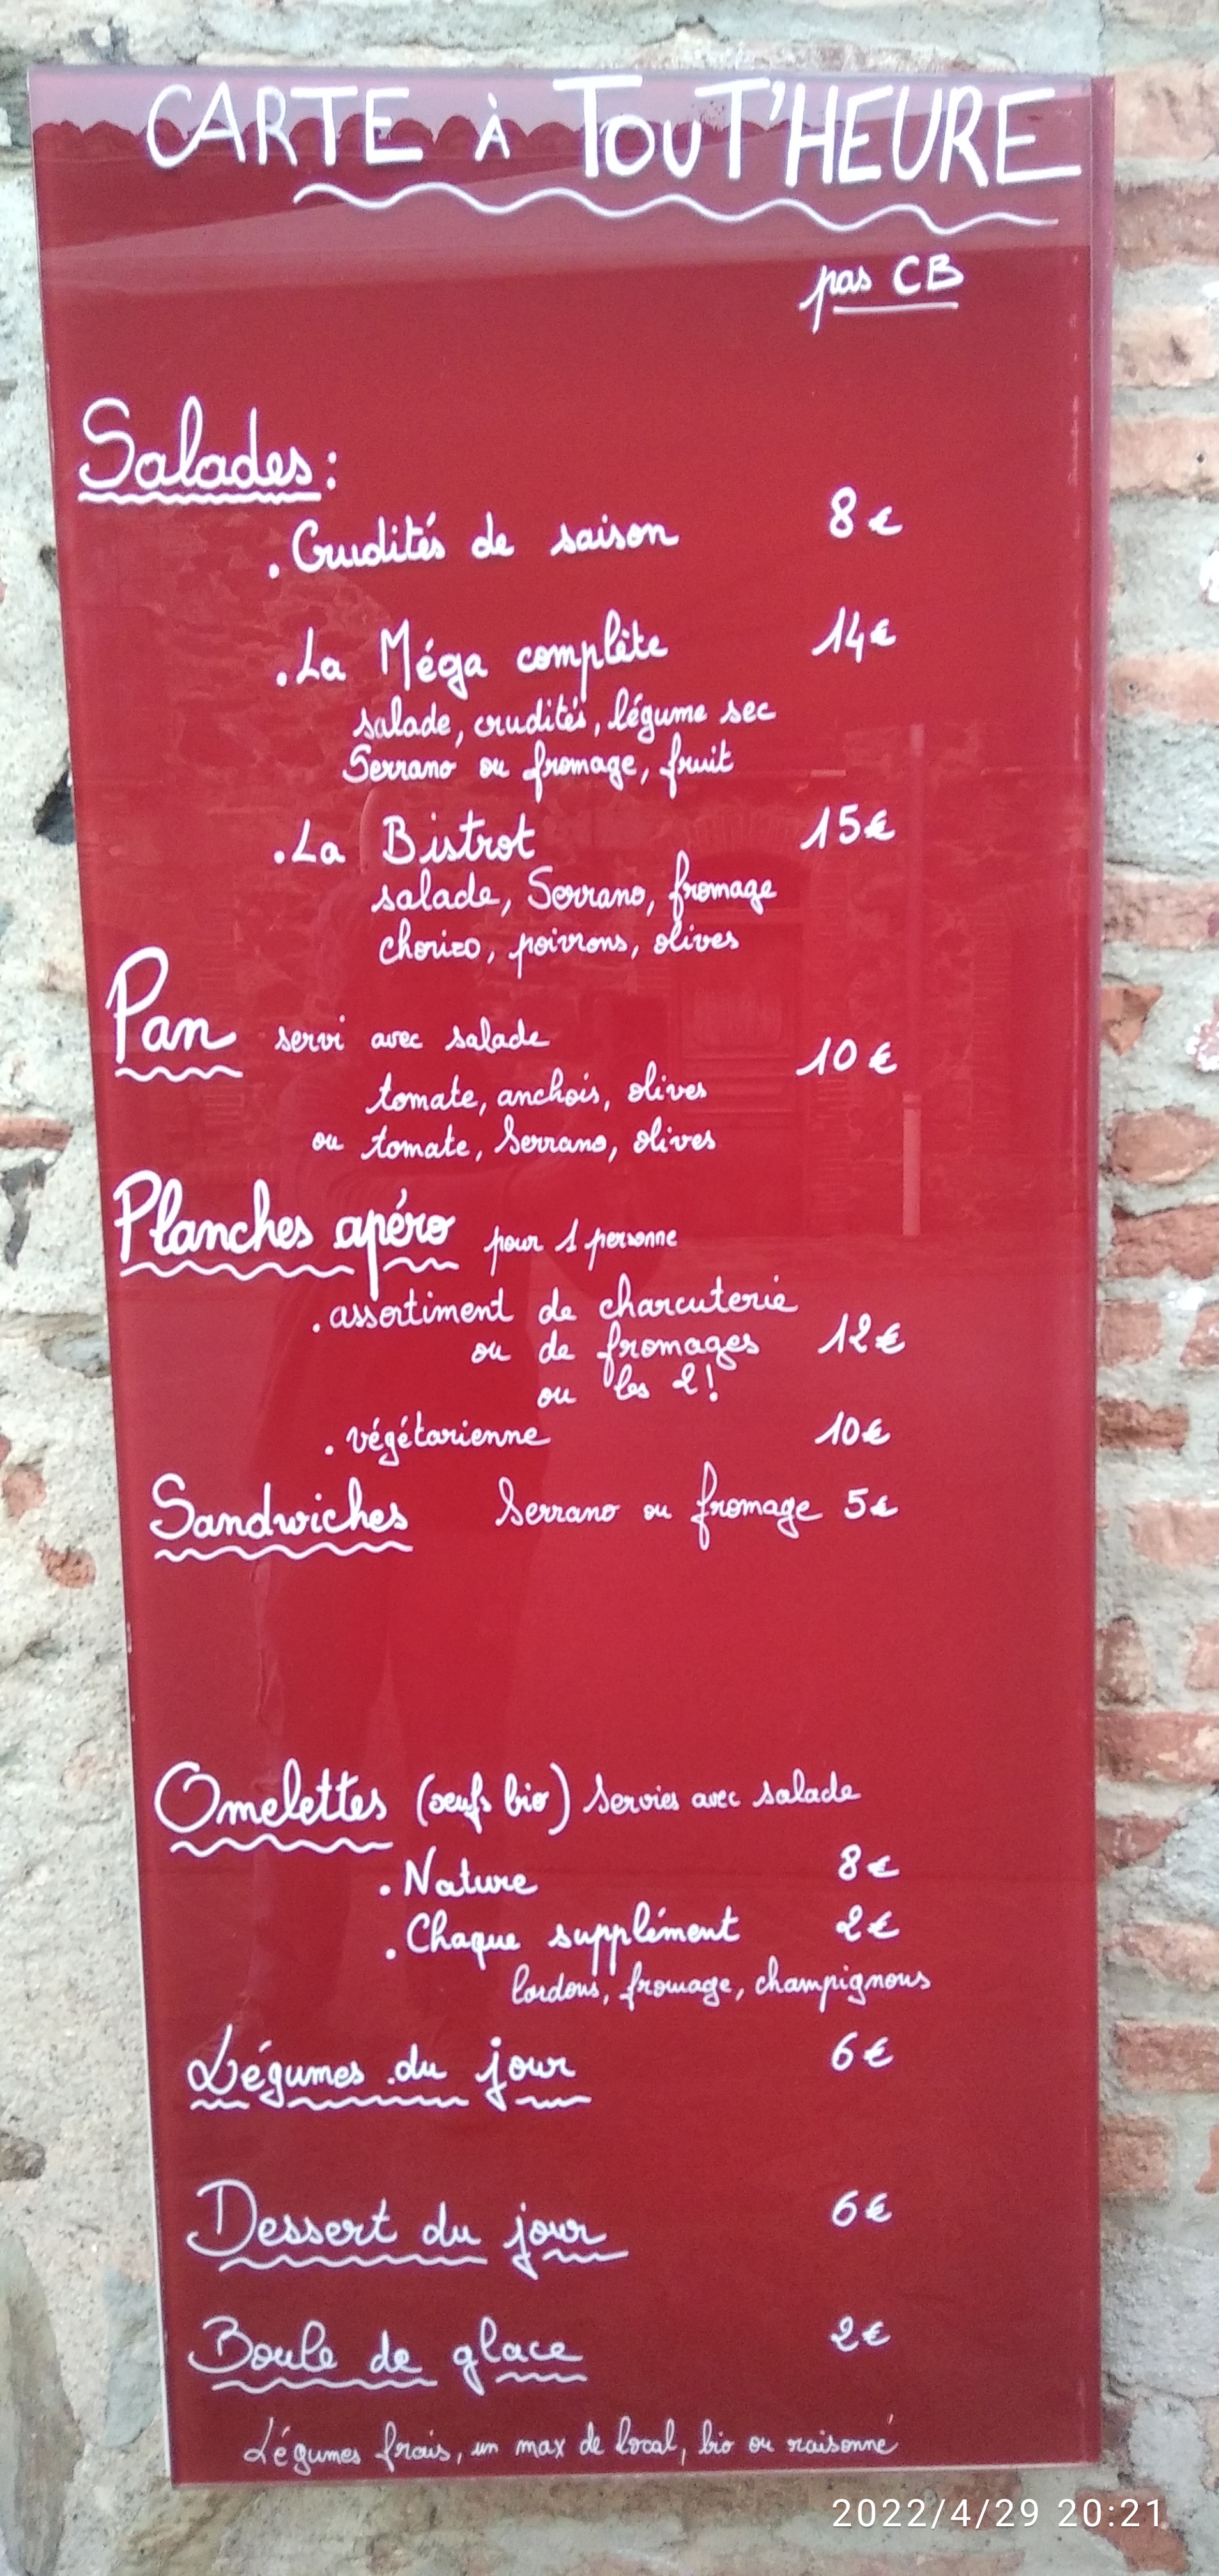 CARTE À TOUT'HEURE
pas CB
Salades :
. Crudités de saison 8€
. La Méga complète 14€
salade, crudités, légume sec
Serrano ou fromage, fruit
. La Bistrot 15€
salade, Serrano, fromage
chorizo, poivrons, olives
Pan servi avec salade 10€
tomate, anchois, olives
ou tomate, Serrano, olives
Planches apéro pour 1 personne
. assortiment de charcuterie
ou de fromages 12€
ou les 2!
. végétarienne 10€
Sandwiches Serrano ou fromage 5€
Omelettes (œufs bio) servies avec salade
. Nature 8€
. Chaque supplément 2€
lardons, fromage, champignons
Légumes du jour 6€
Dessert du jour 6€
Boule de glace 2€
Légumes frais, un max de local, bio ou raisonné
2022/4/29 20:21